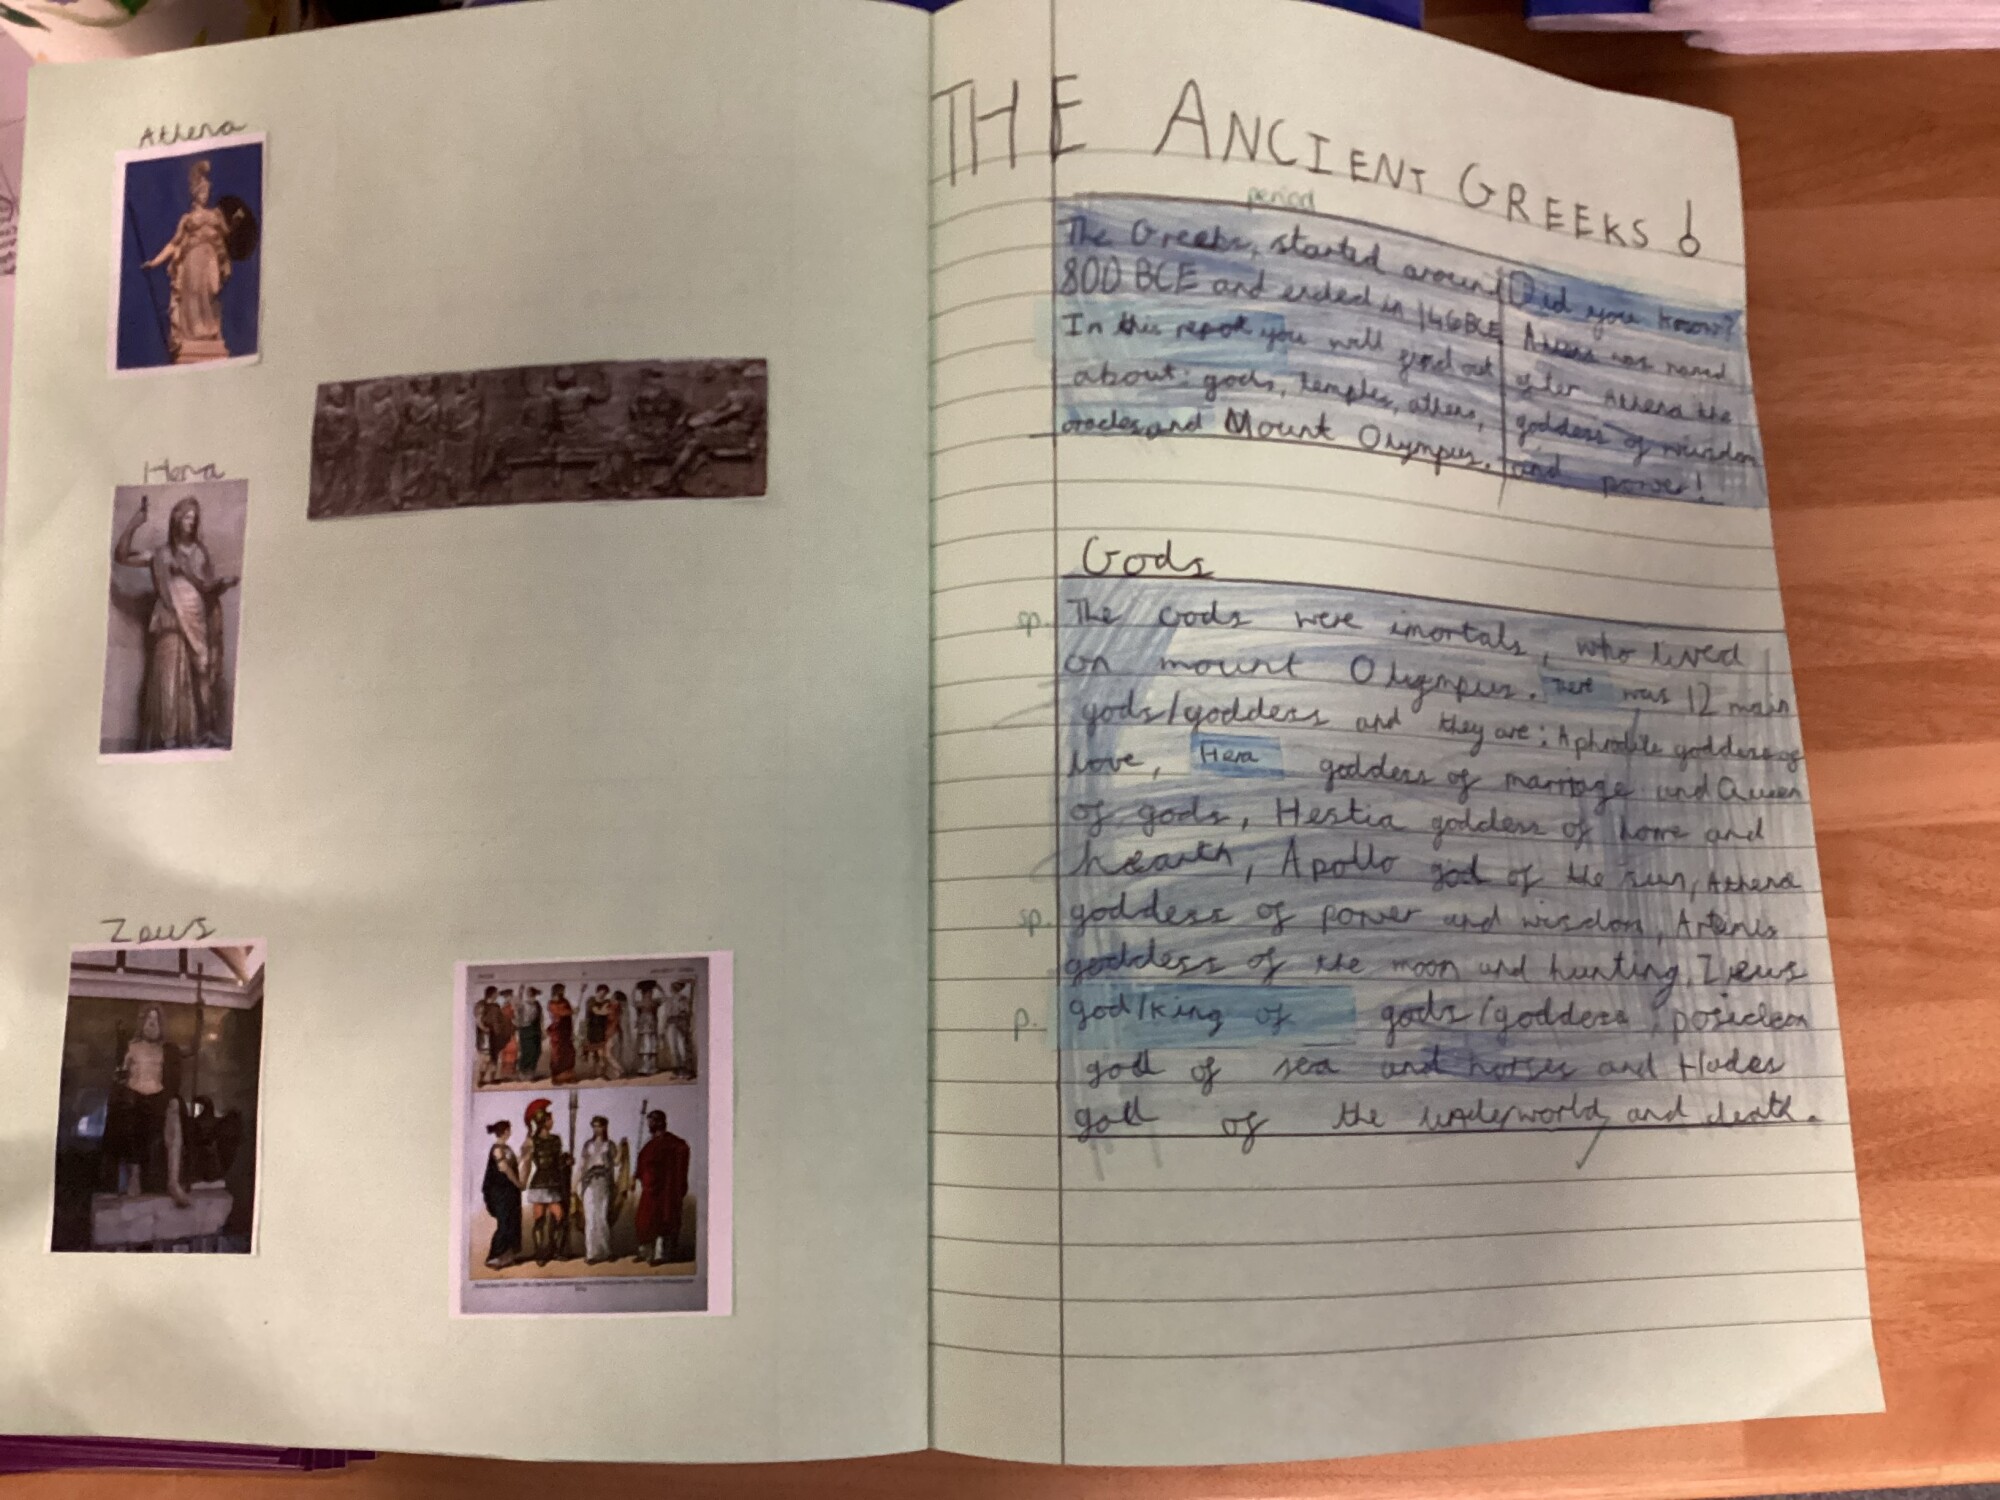 Athena
Hera
Zeus
THE ANCIENT GREEKS!
period
The Greeks, started around
800 BCE and ended in 146 BCE
In this repot you will find out
about: gods, temples, athens,
oracles, and Mount Olympus.
Did you know?
was named
after Athena the
goddess of wisdom
and power!
Gods
sp. The Gods were imortals, who lived
on mount Olympus. There was 12 main
gods/goddess and they are: Aphrodite goddess of
love, Hera goddess of marriage and Queen
of gods, Hestia goddess of home and
hearth, Apollo god of the sun, Athena
sp. goddess of power and wisdom, Artemis
goddess of the moon and hunting, Zeus
p. god/king of gods/goddess, posiden
god of sea and horses and Hades
god of the underworld, and death.